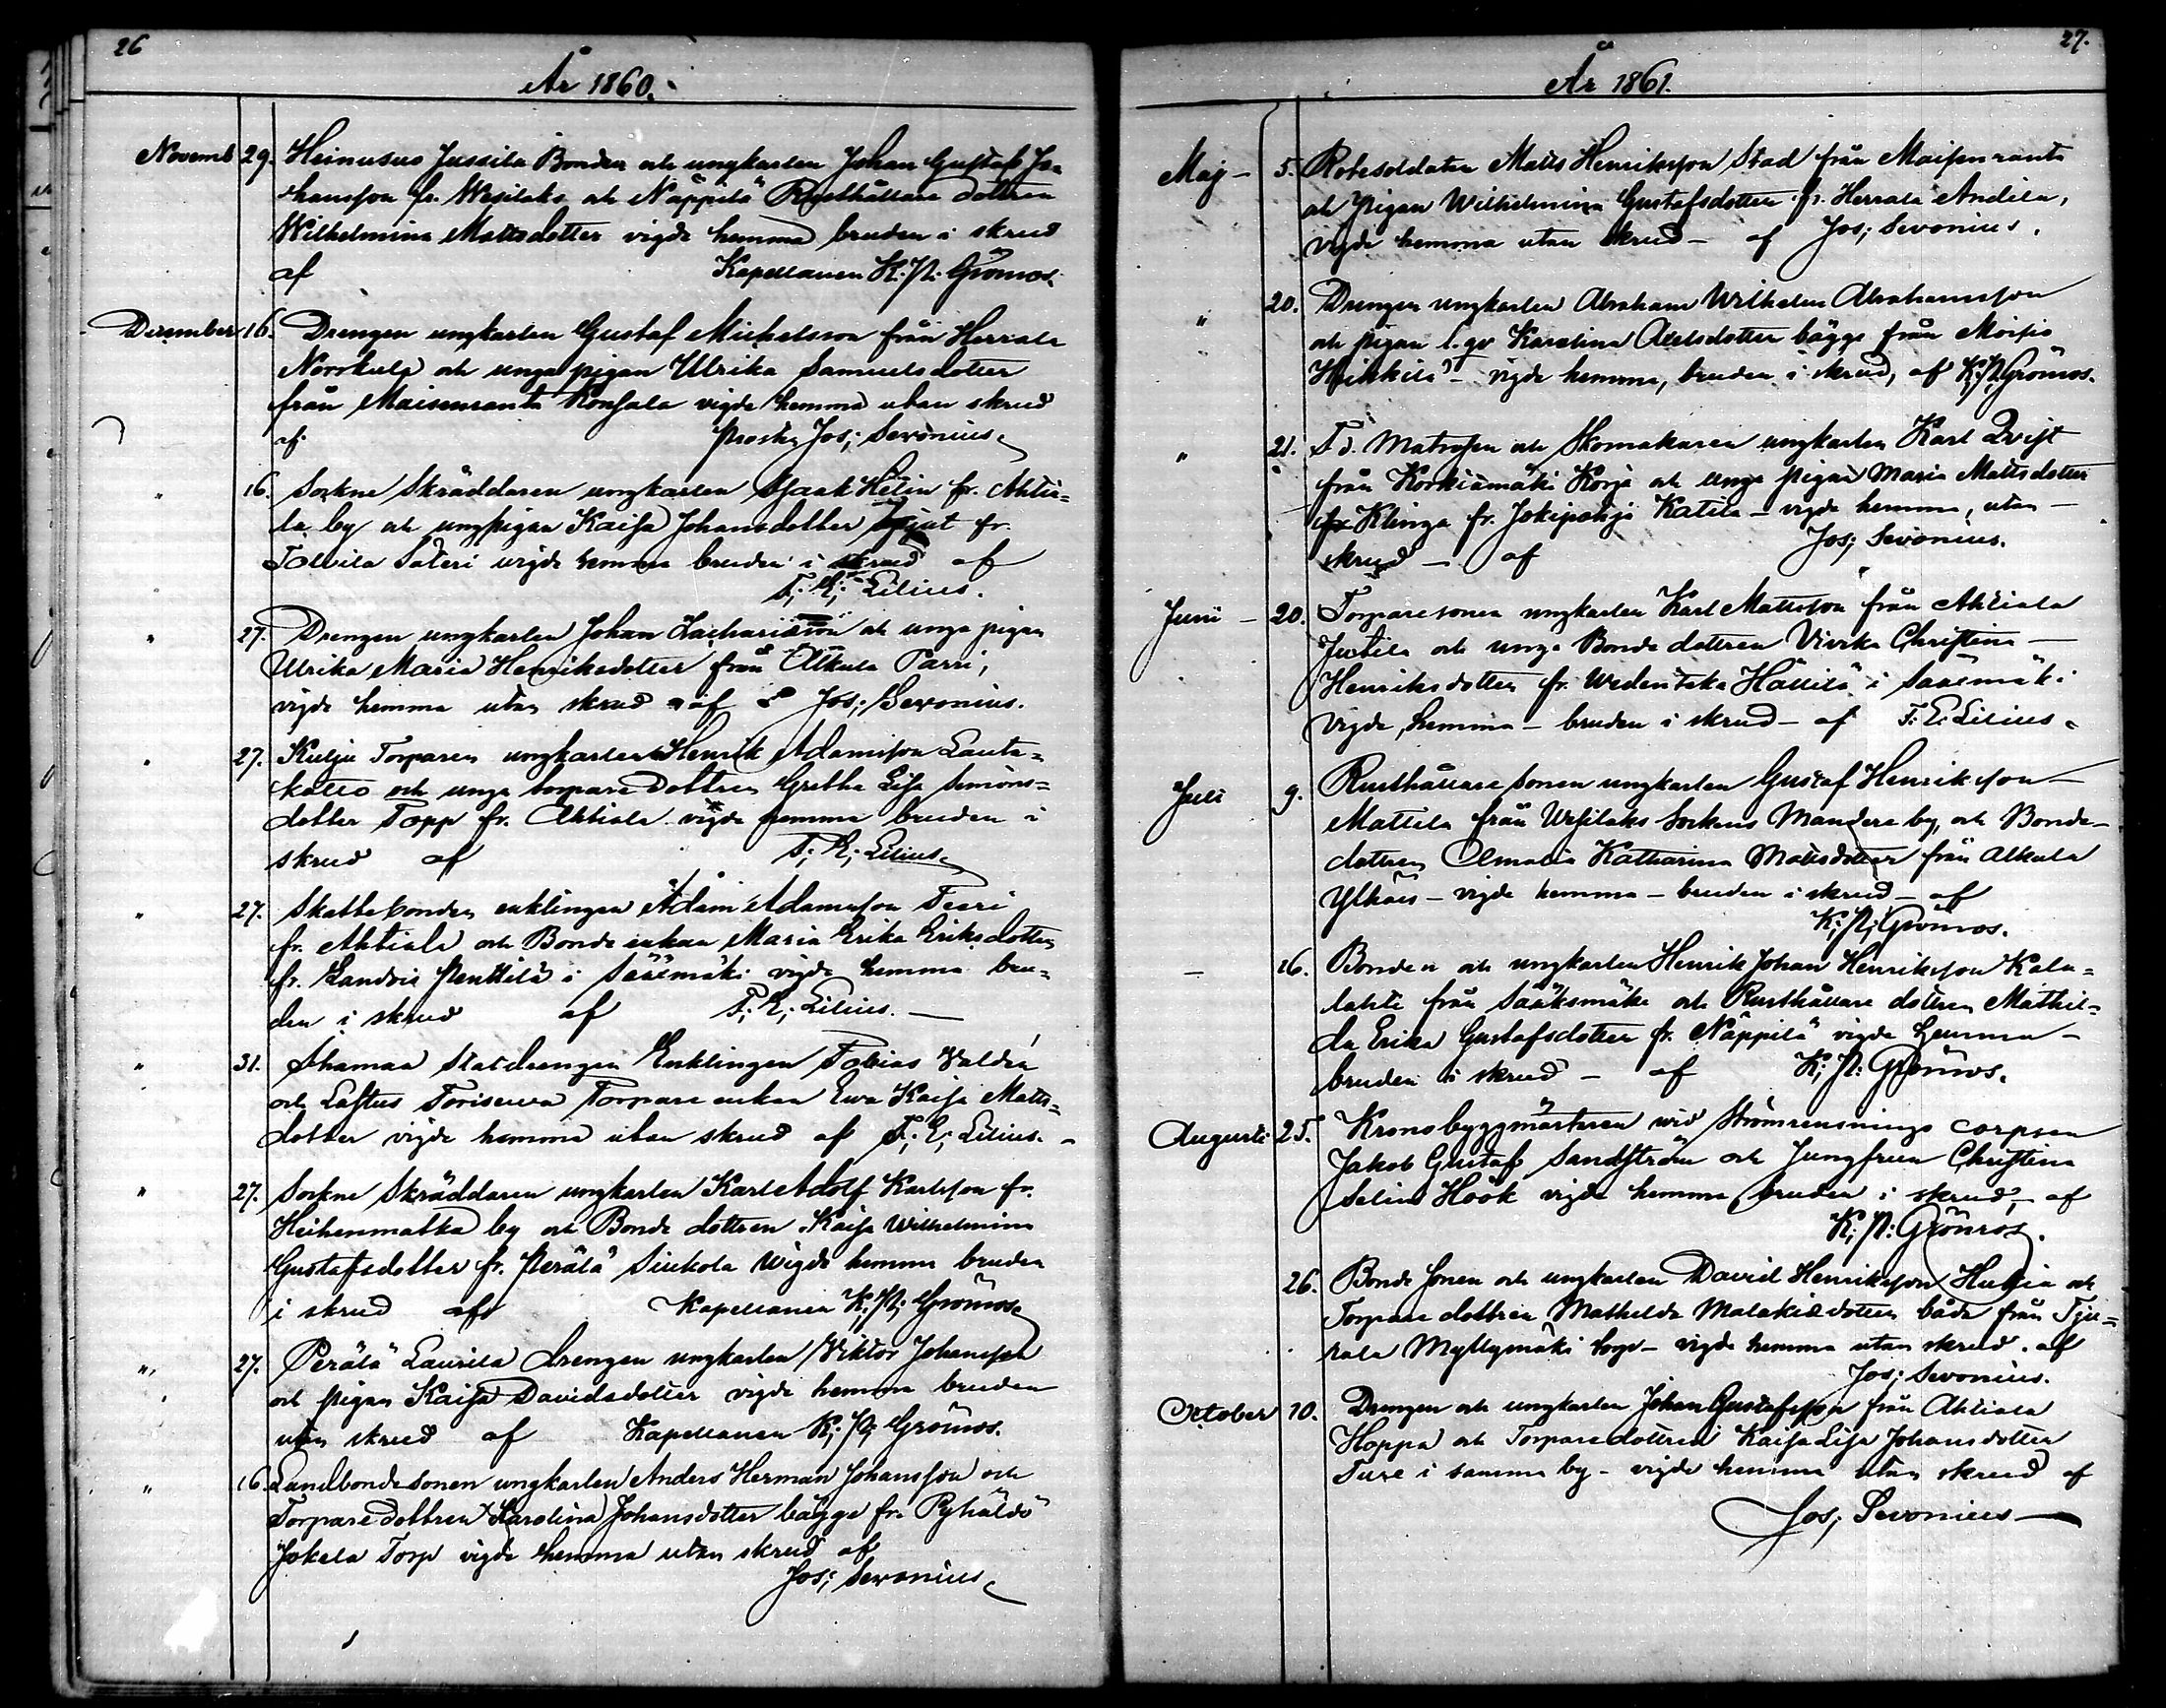 26
År 1860.
Novemb 29. Heinusuo Jussila Bonden och ungkarlen Johan Gustaf Jo-
hansson fr. Wesilaks och Näppilä Rusthållare dottren
Wilhelmina Mattsdotter vigde hemma bruden i skrud
af Kapellanen K. N. Grönros.
December 16. Drengen ungkarlen Gustaf Michelsson från Herrala
Norrkulp och unga pigan Ulrika Samuelsdotter
från Maisenranta Konsala vigde hemma utan skrud
af. Prosten Jos; Sevonius.
" 16. Sockne Skräddaren ungkarlen Isaak Helin fr. Ahtia=
la by och ungpigan Kaisa Johansdotter fr.
Tolvila Säteri vigde hemma bruden i skrud af
F; E; Lilius.
" 27. Drengen ungkarlen Johan Zachariasson och unga pigan
Ulrika Maria Henriksdotter från Alkula Parri,
vigde hemma utan skrud af Jos; Sevonius.
" 27. Kulju Torparen ungkarlen Henrik Adamsson Lauta=
katto och unga torparedottren Gretha Lisa Simons=
dotter Topp fr. Ahtiala vigde hemma bruden i
skrud af F; E; Lilius.
" 27. Skattebonden enklingen Adam Adamsson Teeri
fr. Ahtiala och Bonde enkan Maria Erika Eriksdotter
fr. Landvia Penttilä i Sääxmäki vigde hemma bru=
den i skrud af F; E; Lilius. —
" 31. Ahamaa Statdrengen Enklingen Tobias Valdén
och Laftus Torisewa Torpare enkan Ewa Kaisa Matts=
dotter vigde hemma utan skrud af F; E; Lilius. —
" 27. Sockne Skräddaren ungkarlen Karl Adolf Karlsson fr.
Heihenmatka by och Bonde dottren Kaisa Wilhelmina
Gustafsdotter fr. Perälä Siukola wigde hemma bruden
i skrud af Kapellanen K; N; Grönros.
" 27. Perälä Laurila drengen ungkarlen Viktor Johansson
och pigan Kaisa Davidsdotter vigde hemma bruden
utan skrud af Kapellanen K; N; Grönros.
" 16. Landbondesonen ungkarlen Anders Herman Johansson och
Torpare dottren Karolina Johansdotter bägge fr. Pyhäldö
Jokela Torp vigde hemma utan skrud af
Jos; Sevonius.
27.
År 1861.
Maj — 5. Rotesoldaten Matts Henriksson Stad från Maisenranta
och Pigan Wilhelmina Gustafsdotter fr. Herrala Andila,
vigde hemma utan skrud — af Jos; Sevonius.
" 20. Drengen ungkarlen Abraham Wilhelm Abrahamsson
och pigan l. qv Karolina Axelsdotter bägge från Moisio
Heikkilä — vigde hemma, bruden i skrud, af K; N. Grönros.
" 21. F. d. Matrosen och Skomakaren ungkarlen Karl Qvist
från Korkiamäki Korja och unga pigan Maria Mattsdotter
Klinga fr. Jokipohja Katila — vigde hemma, utan —
skrud — af Jos; Sevonius.
Juni — 20. Torparesonen ungkarlen Karl Mattsson från Ahtiala
Jutila och unga Bonde dottren Vivika Christina —
Henriksdotter fr. Wedentaka Hällilä i Sääxmäki
vigde, hemma — bruden i skrud — af F: E: Lilius.
Juli 9. Rusthållare sonen ungkarlen Gustaf Henriksson —
Mattila från Wesilaks Sockens Mandere by, och Bonde-
dottren Amalia Katharina Mattsdotter från Alkula
Ylhäis — vigde hemma — bruden i skrud — af
K; N; Grönros.
— 16. Bonden och ungkarlen Henrik Johan Henriksson Kala=
lahti från Sääksmäki och Rusthållare dottren Mathil=
da Erika Gustafsdotter fr. Näppilä vigde hemma —
bruden i skrud — af K; N: Grönros.
Augusti 25. Kronobyggmästaren wid Strömrensnings corpsen
Jakob Gustaf Sandström och Jungfrun Christina
Selina Höök vigde hemma, bruden i skrud, — af
K; N: Grönros.
26. Bonde sonen och ungkarlen David Henriksson Hutia och
Torpare dottren Mathilda Malakiasdotter båda från Tju=
rala Myllymäki torp — vigde hemma utan skrud. af
Jos; Sevonius.
October 10. Drengen och ungkarlen Johan Gustafsson från Ahtiala
Hoppa och Torparedottren Kaisa Lisa Johansdotter
Ture i samma by — vigde hemma utan skrud af
Jos; Sevonius —